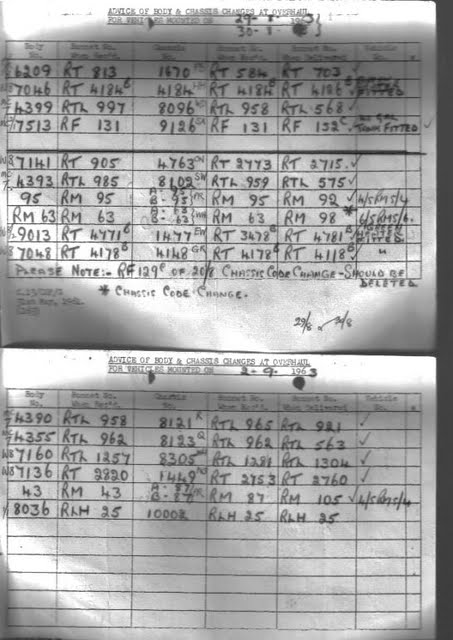 ADVICE OF BODY & CHASSIS CHANGES AT OVERHAUL
FOR VEHICLES MOUNTED ON 29-8-1963
30-8-63
Body No. Bonnet No. When Rec'd. Chassis No. Bonnet No. When Rec'd. Bonnet No. When Delivered Vehicle No.
6209 RT 813 1670 RT 584 RT 703 ✓
7046 RT 4184 4184 RT 4184 RT 4126 FITTED
4399 RTL 997 8096 RTL 958 RTL 568 ✓
7513 RF 131 9126 RF 131 RF 132 TOWN FITTED ✓
7141 RT 905 4763 RT 2773 RT 2715 ✓
4393 RTL 985 8102 RTL 959 RTL 575 ✓
95 RM 95 A-95 B-95 RM 95 RM 92 ✓ 4/5RM5/4
RM 63 RM 63 B-63 RM 63 RM 98 * 6/5RM5/6.
9013 RT 4771 1477 RT 3478 RT 4781 FITTED
7048 RT 4178 4148 RT 4178 RT 4118 ✓ "
PLEASE NOTE:- RF 129 OF 20/8 CHASSIS CODE CHANGE - SHOULD BE
DELETED
* CHASSIS CODE CHANGE.
31st May, 1961.
29/8 ✓
ADVICE OF BODY & CHASSIS CHANGES AT OVERHAUL
FOR VEHICLES MOUNTED ON 2-9-1963
Body No. Bonnet No. When Rec'd. Chassis No. Bonnet No. When Rec'd. Bonnet No. When Delivered Vehicle No.
4390 RTL 958 8121 RTL 965 RTL 921 ✓
4355 RTL 962 8123 RTL 962 RTL 563 ✓
7160 RTL 1257 8305 RTL 1281 RTL 1304 ✓
7136 RT 2820 1449 RT 2753 RT 2760 ✓
43 RM 43 A-87 B-87 RM 87 RM 105 ✓ 4/5RM5/4
8036 RLH 25 10002 RLH 25 RLH 25